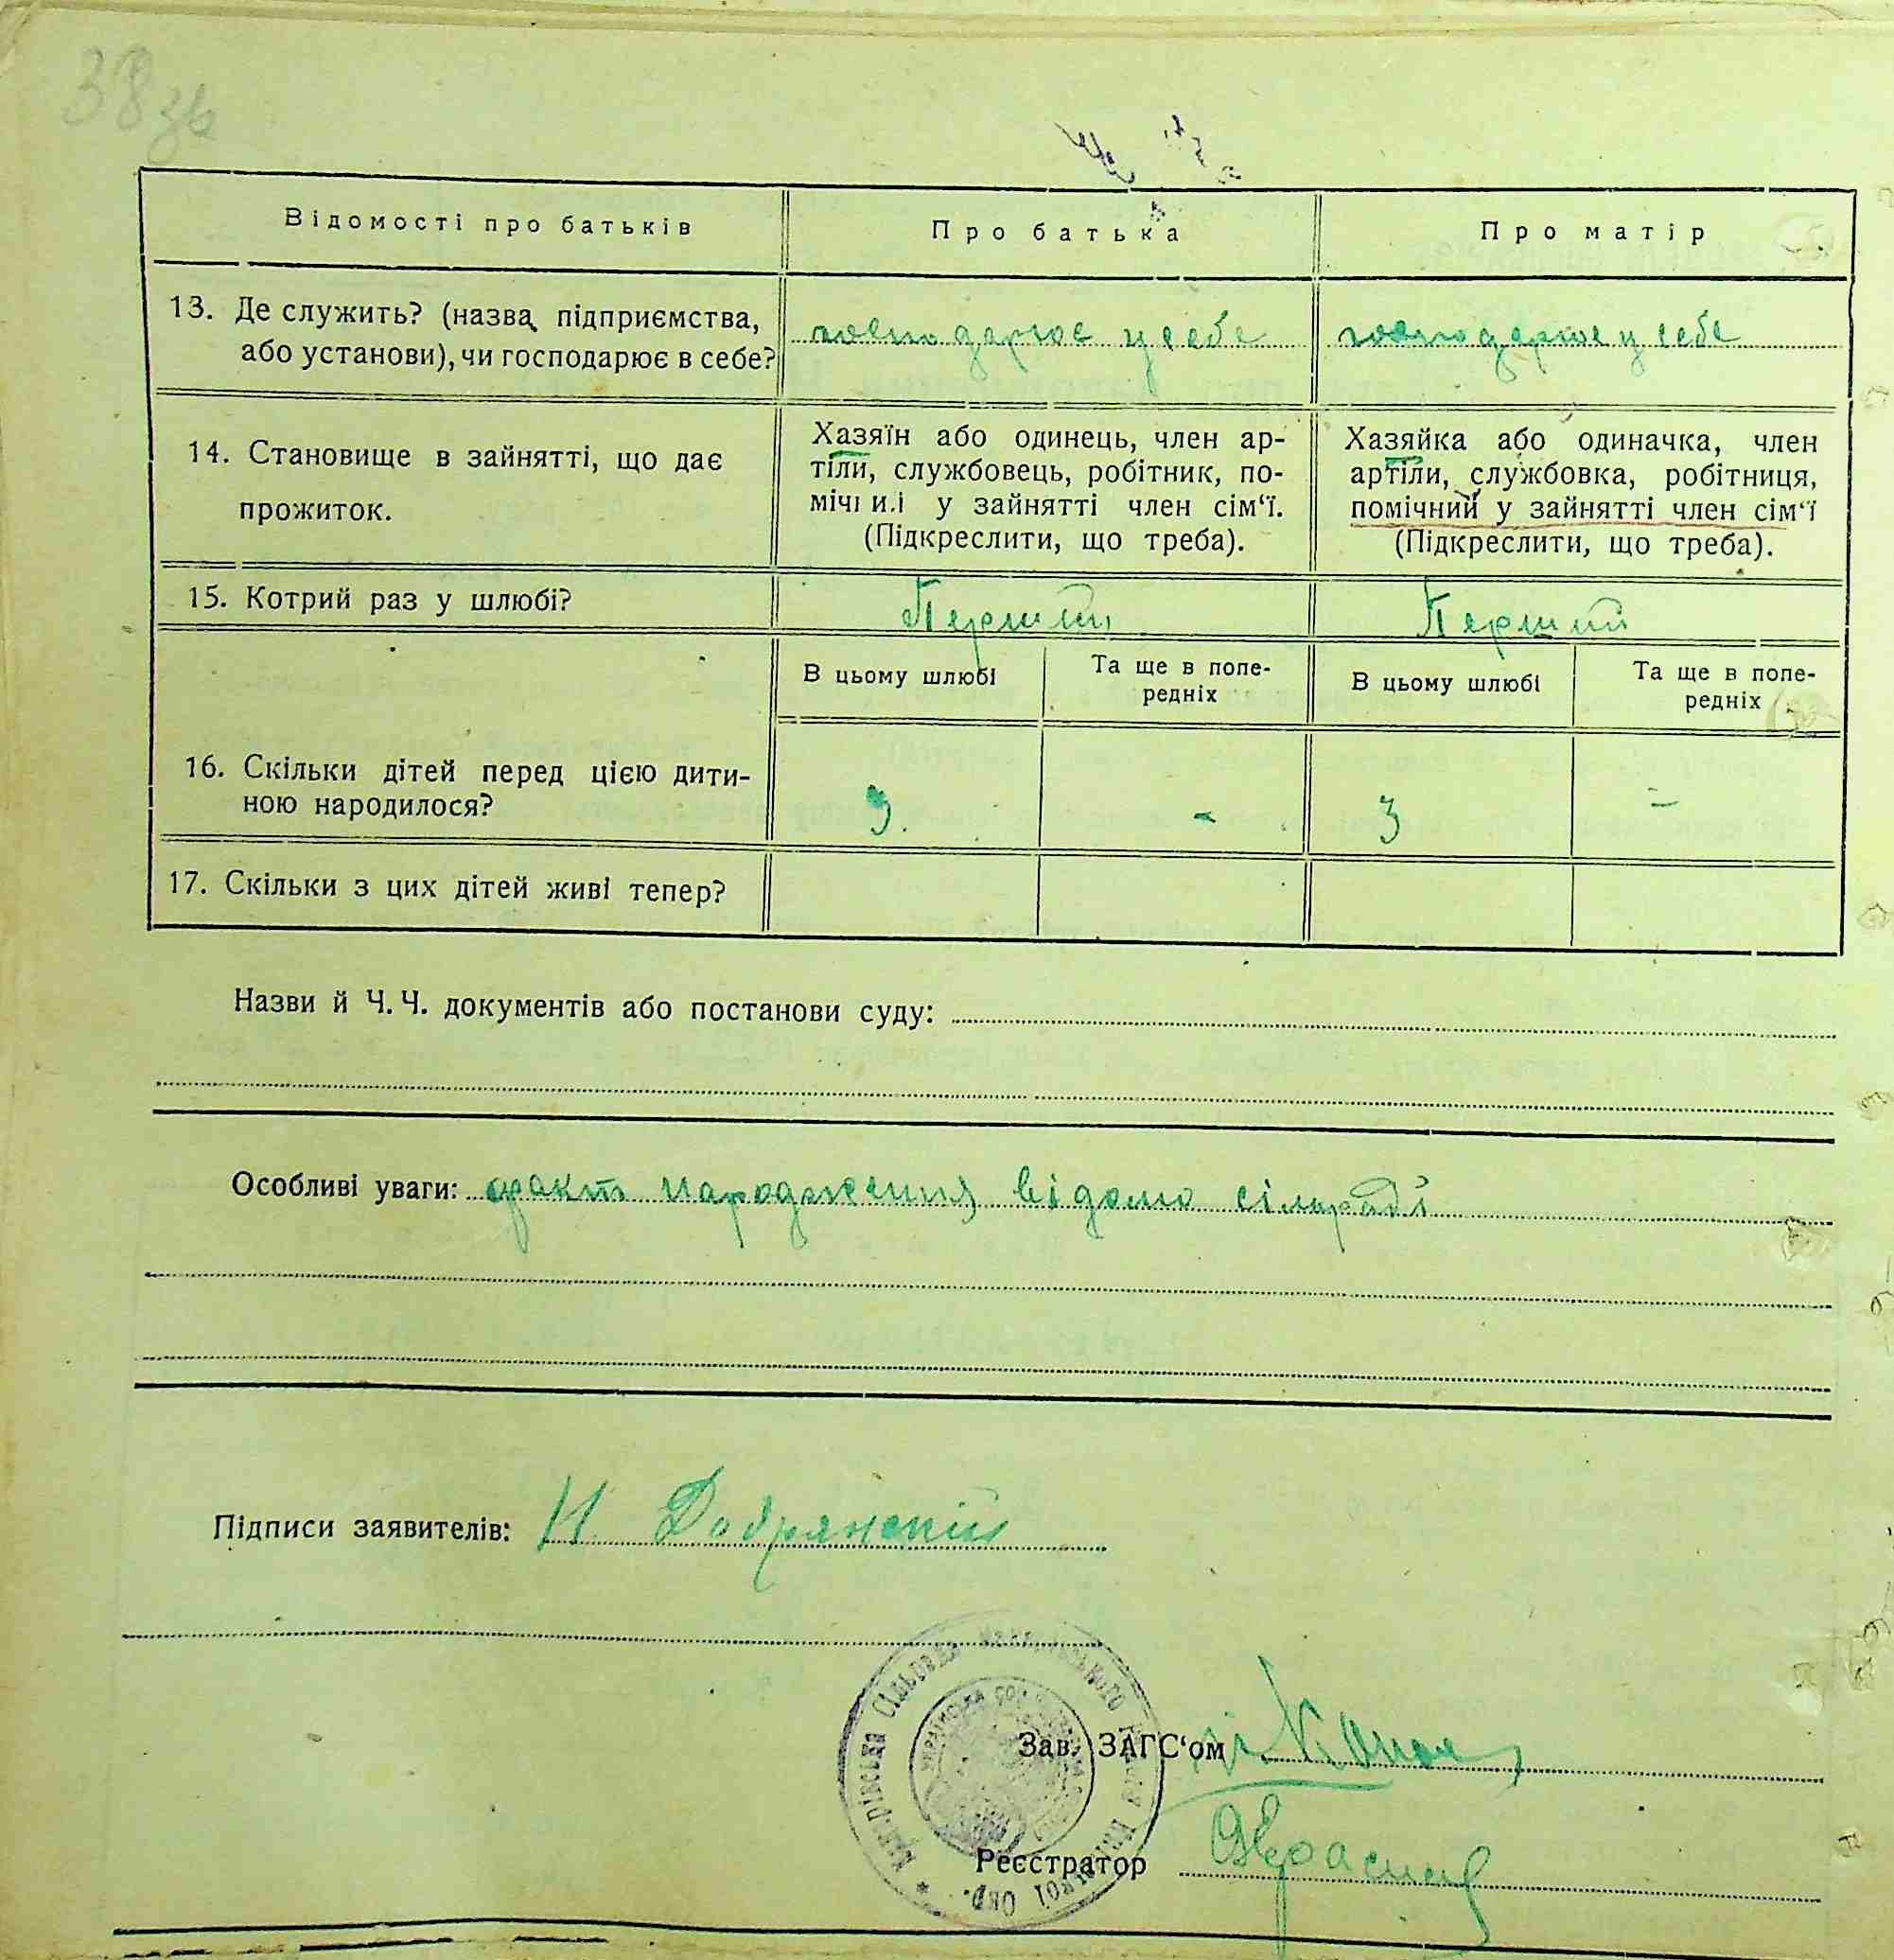 38 зв
Відомості про батьків
Про батька
Про матір
13. Де служить? (назва підприємства,
або установи), чи господарює в себе?
господарює у себе
господарює у себе
14. Становище в зайнятті, що дає
прожиток.
Хазяїн або одинець, член ар-
тіли, службовець, робітник, по-
мічний у зайнятті член сім‘ї.
(Підкреслити, що треба).
Хазяйка або одиначка, член
артіли, службовка, робітниця,
помічний у зайнятті член сім‘ї
(Підкреслити, що треба).
15. Котрий раз у шлюбі?
Перший
Перший
В цьому шлюбі
Та ще в попе-
редніх
В цьому шлюбі
Та ще в попе-
редніх
16. Скільки дітей перед цією дити-
ною народилося?
3.
-
3
-
17. Скільки з цих дітей живі тепер?
Назви й Ч. Ч. документів або постанови суду:
Особливі уваги: факт народження відомо сільраді
Підписи заявителів: И Добрянский
Зав. ЗАГС‘ом
Реєстратор